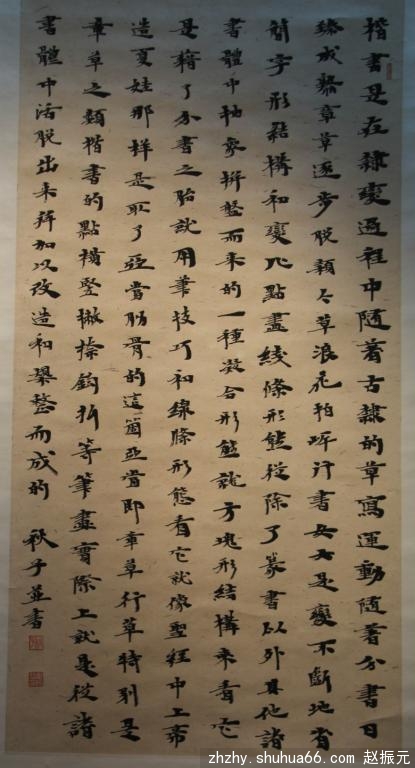 楷書是在隸變過程中隨著古隸的草寫運動隨著分書日
臻成熟章草逐步脫穎今草浪花拍岸行書女大是變不斷地省
簡字形結構和變化點畫綫條形態從除了篆書以外其他諸
書體中抽象拼盤而來的一種湊合形態就方塊形結構來看它
是藉了分書之胎就用筆技巧和線條形態看它就像聖經中上帝
造夏娃那樣是取了亞當肋骨的這箇亞當即章草行草特別是
章草之類楷書的點橫豎撇捺鉤折等筆畫實際上就是從諸
書體中活脫出來并加以改造和槼整而成的 秋子並書
zhzhy.shuhua66.com 赵振元